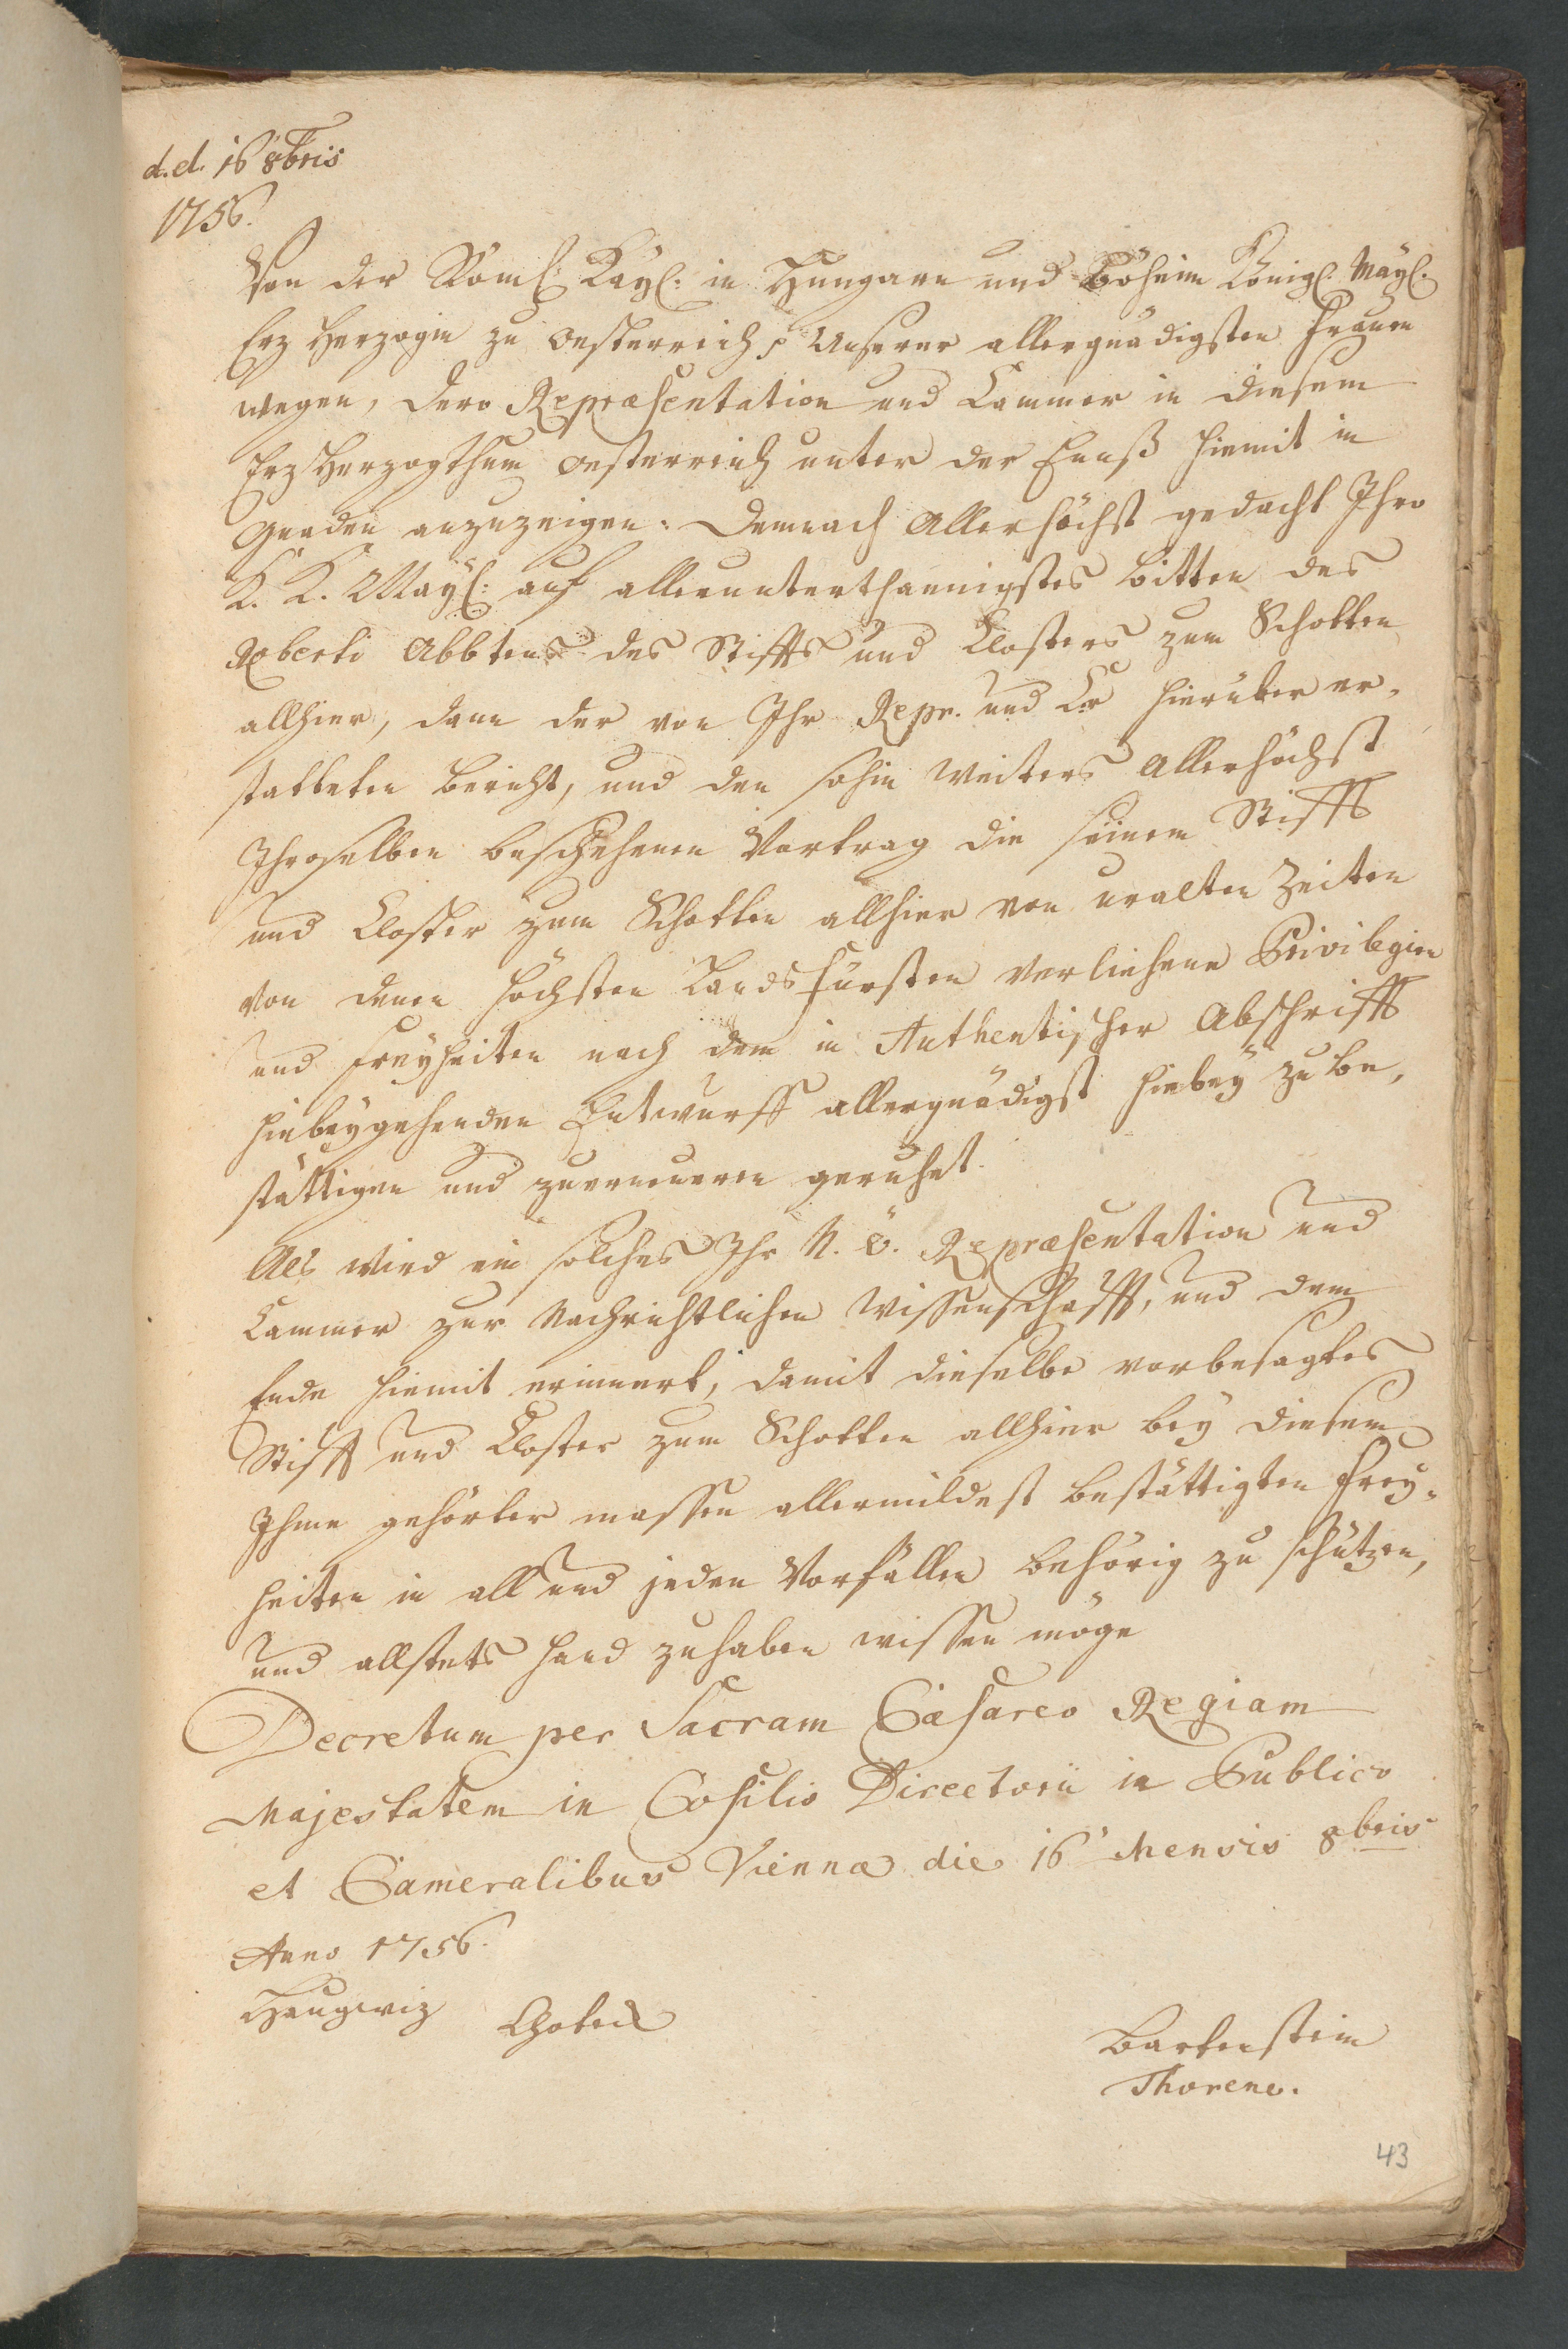 d. d. 16 8bris
1756.
Von der Röml: Kayl: in Hungarn und Böheim Königl. Mayl.
Erz Herzogin zu Oesterreich p Unserer allergnädigsten Frauen
wegen, dero Repræsentation und Cammer in diesem
Erz Herzogthum Oesterreich unter der Ennß hiemit in
Gnaden anzuzeigen. Demnach Allerhöchst gedacht Ihro
K. K. May: auf allerunterthännigstes bitten des
Roberti Abbtens des Stiffts und Closters zum Schotten
allhier, dann der von Ihr Repr. und Cr hierüber er¬
statteten bericht, und den sohin weiters Allerhöchst
Ihroselben beschehenen Vortrag die seinem Stifft
und Closter zum Schotten allhier von uralten Zeiten
von denen höchsten Landsfürsten verliehene Privilegien
und Freyheiten nach dem in Authentischer Abschrifft
hiebeygehenden Entwurff allergnädigst hiebey zu be¬
stättigen und zuerneuern geruhet.
Als wird ein solches Ihr N. Ö. Repræsentation und
Cammer zur Nachrichtlichen Wissenschafft, und dem
Ende hiemit erinnert, damit dieselbe vorbesagtes
Stifft und Closter zum Schotten allhier bey diesem
Ihme gehörter massen allermildest bestättigten Frey¬
heiten in all und jeden Vorfällen behörig zu schützen,
und allstets Hand zuhaben wissen möge
Decretum per Sacram Cæsareo Regiam
Majestatem in Cosilio Directorii in Publico
et Cameralibus Viennæ die 16 Mensis 8bris
Anno 1756.
Haugwiz Chotek
Bartenstein
Thoren.
43